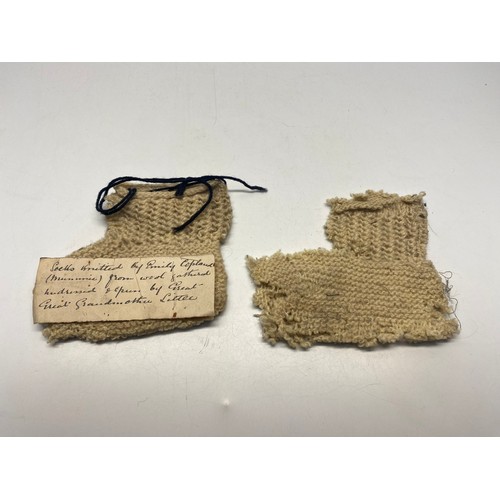 Socks knitted by Emily Copland
(Mummie) from wool gathered
& spun by Great
Great Grandmother Little